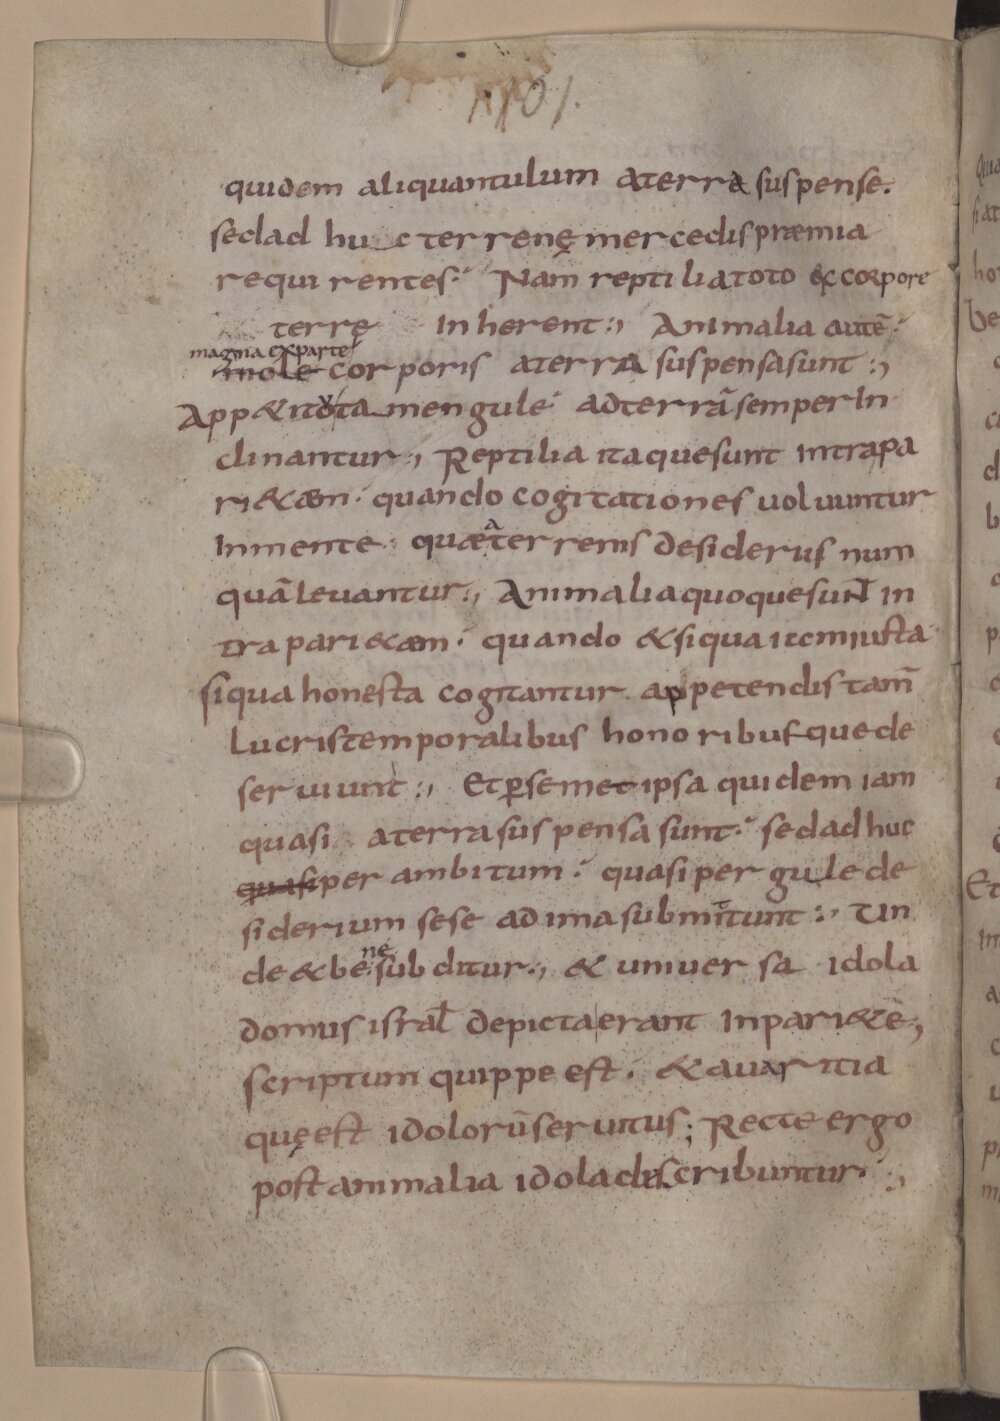 1101.
quidem aliquantulum aterra suspense.
sedad huc terrenę mercedis præmia
requirentes. Nam reptilia toto ex corpore
terrę Inherent:, Animalia autē.
magna exparte
mole corporis aterra suspensasunt:,
App&itota men gule adterrā semper In
clinantur., Reptilia itaquesunt intrapa
ri&æm. quando cogitationes uoluuntur
Inmente. quæ a terrenis desideriis num
quā leuantur., Animaliaquoquesun̄ in
trapari&æm. quando &siqua iτemiusta
siqua honesta cogitantur appetendis tam̄
Lucris temporalibus honoribusquede
seruiunt:, Etꝑsemetipsa quidem iam
quasi aterra suspensa sunt. sedadhuc
quasi per ambitum. quasi per gule de
siderium sese ad ima submittunt:, Un
de & bene subditur., & uniuersa idola
domus isral̄ depicta erant Inpari&ē,
scriptum quippe est. & auaritia
quę est idolorū seruitus; Recte ergo
post animalia idola describuntur.,